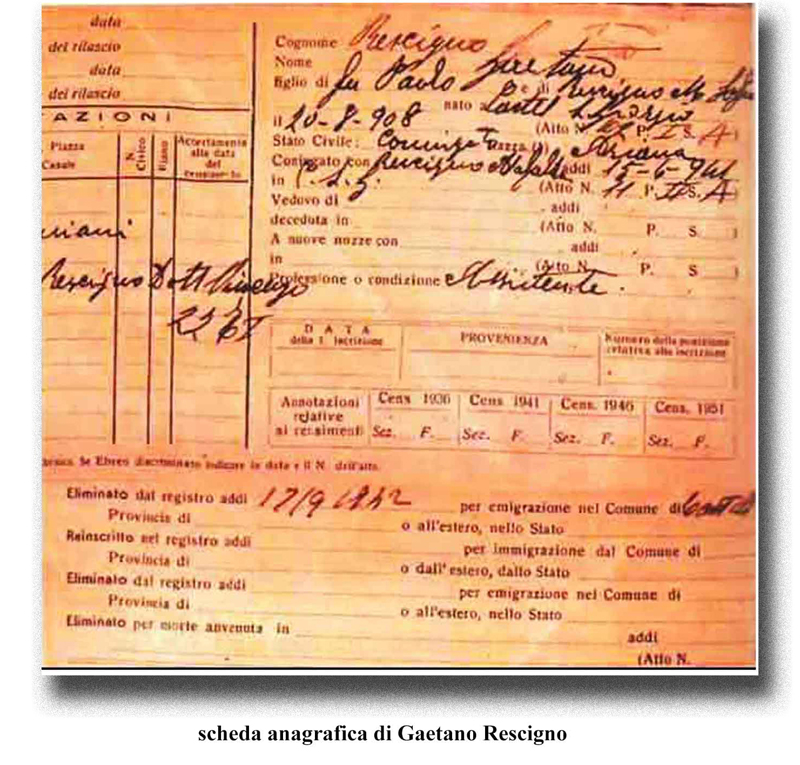 data
del rilascio
data
del rilascio
AZIONI
Piazza
Casale
N. Civico
Piano
Accertamento
alla data
del
censimento
Rescigno Dott
Cognome Rescigno
Nome Gaetano
figlio di fu Paolo e di Rescigno M.
nato a Castel S. Giorgio
il 20-8-908 (Atto N. P. I S. A)
Stato Civile: Coniugato Razza (1) Ariana
Coniugato con Rescigno Mafalda addi 15-6-941
in C. S. G. (Atto N. 11 P. II S. A)
Vedovo di addi
deceduta in (Atto N. P. S. )
A nuove nozze con addi
in (Atto N. P. S )
Professione o condizione Assistente.
DATA
della 1. iscrizione
PROVENIENZA
Numero della posizione
relativa alla iscrizione
Annotazioni
relative
ai censimenti
Cens 1936
Cens 1941
Cens. 1946
Cens. 1951
Sez. F.
Sez. F.
Sez. F.
Sez. F.
Se Ebreo discriminato indicare la data e il N. dell'atto.
Eliminato dal registro addi 17/9 1942 per emigrazione nel Comune di
Provincia di o all'estero, nello Stato
Reinscritto nel registro addi per immigrazione dal Comune di
Provincia di o dall'estero, dallo Stato
Eliminato dal registro addi per emigrazione nel Comune di
Provincia di o all'estero, nello Stato
Eliminato per morte avvenuta in addi
(Atto N.
scheda anagrafica di Gaetano Rescigno